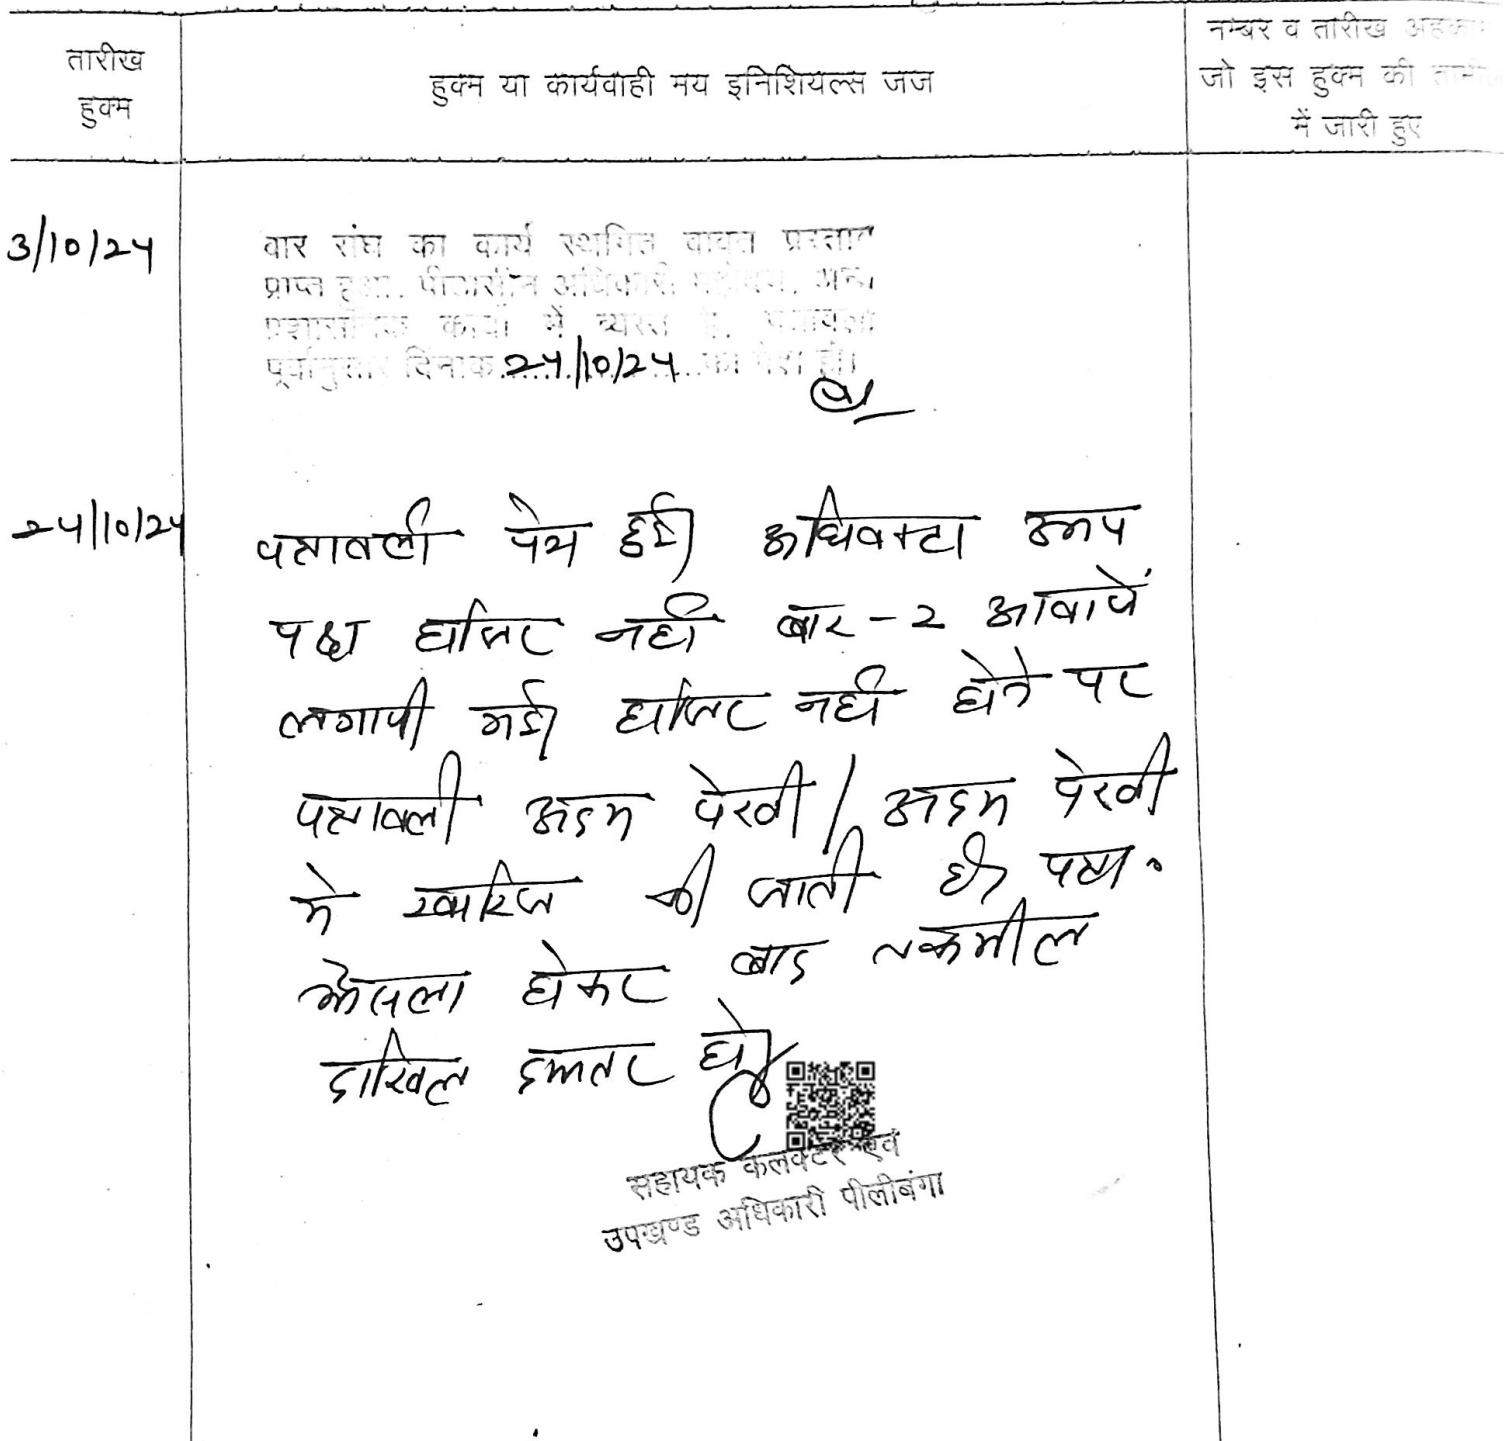 तारीख
हुक्म
हुक्म या कार्यवाही मय इनिशियल्स जज
नम्बर व तारीख अहकाम
जो इस हुक्म की तामील
में जारी हुए
3/10/24
बार संघ का कार्य स्थगित बाबत प्रस्ताव
प्राप्त हुआ. पीठासीन अधिकारी महोदय, अन्य
प्रशासनिक कार्यों में व्यस्त है. पत्रावली
पूर्वानुसार दिनांक 24/10/24 को पेश हो।
24/10/24
पत्रावली पेश हुई। अधिवक्टा उभय
पक्ष हाजिर नहीं बार-2 आवाजें
लगायी गई। हाजिर नहीं होने पर
पत्रावली अदम पेरवी / अदम पेरवी
मे खारिज की जाती है। पत्रा॰
फैसला होकर बाद तकमील
दाखिल दफ्तर हो।
सहायक कलक्टर एवं
उपखण्ड अधिकारी पीलीबंगा